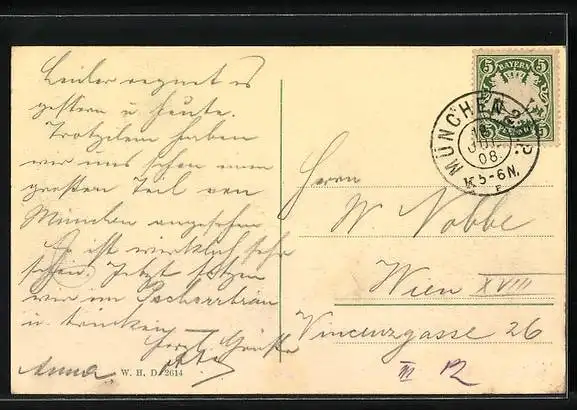 Leider regnet es
gestern u. heute.
Trotzdem haben
wir uns schon einen
großen Teil von
München angesehen
Es ist wirklich sehr
schön. Jetzt sitzen
wir im Pschorrbräu
u. trinken
Herzl. Grüße
Anna
W. H. D. 2614
5 BAYERN 5
MÜNCHEN 2 B.P.
08
5-6 N.
Herrn
W. Nobbe
Wien XVIII
Vinzenzgasse 26
III